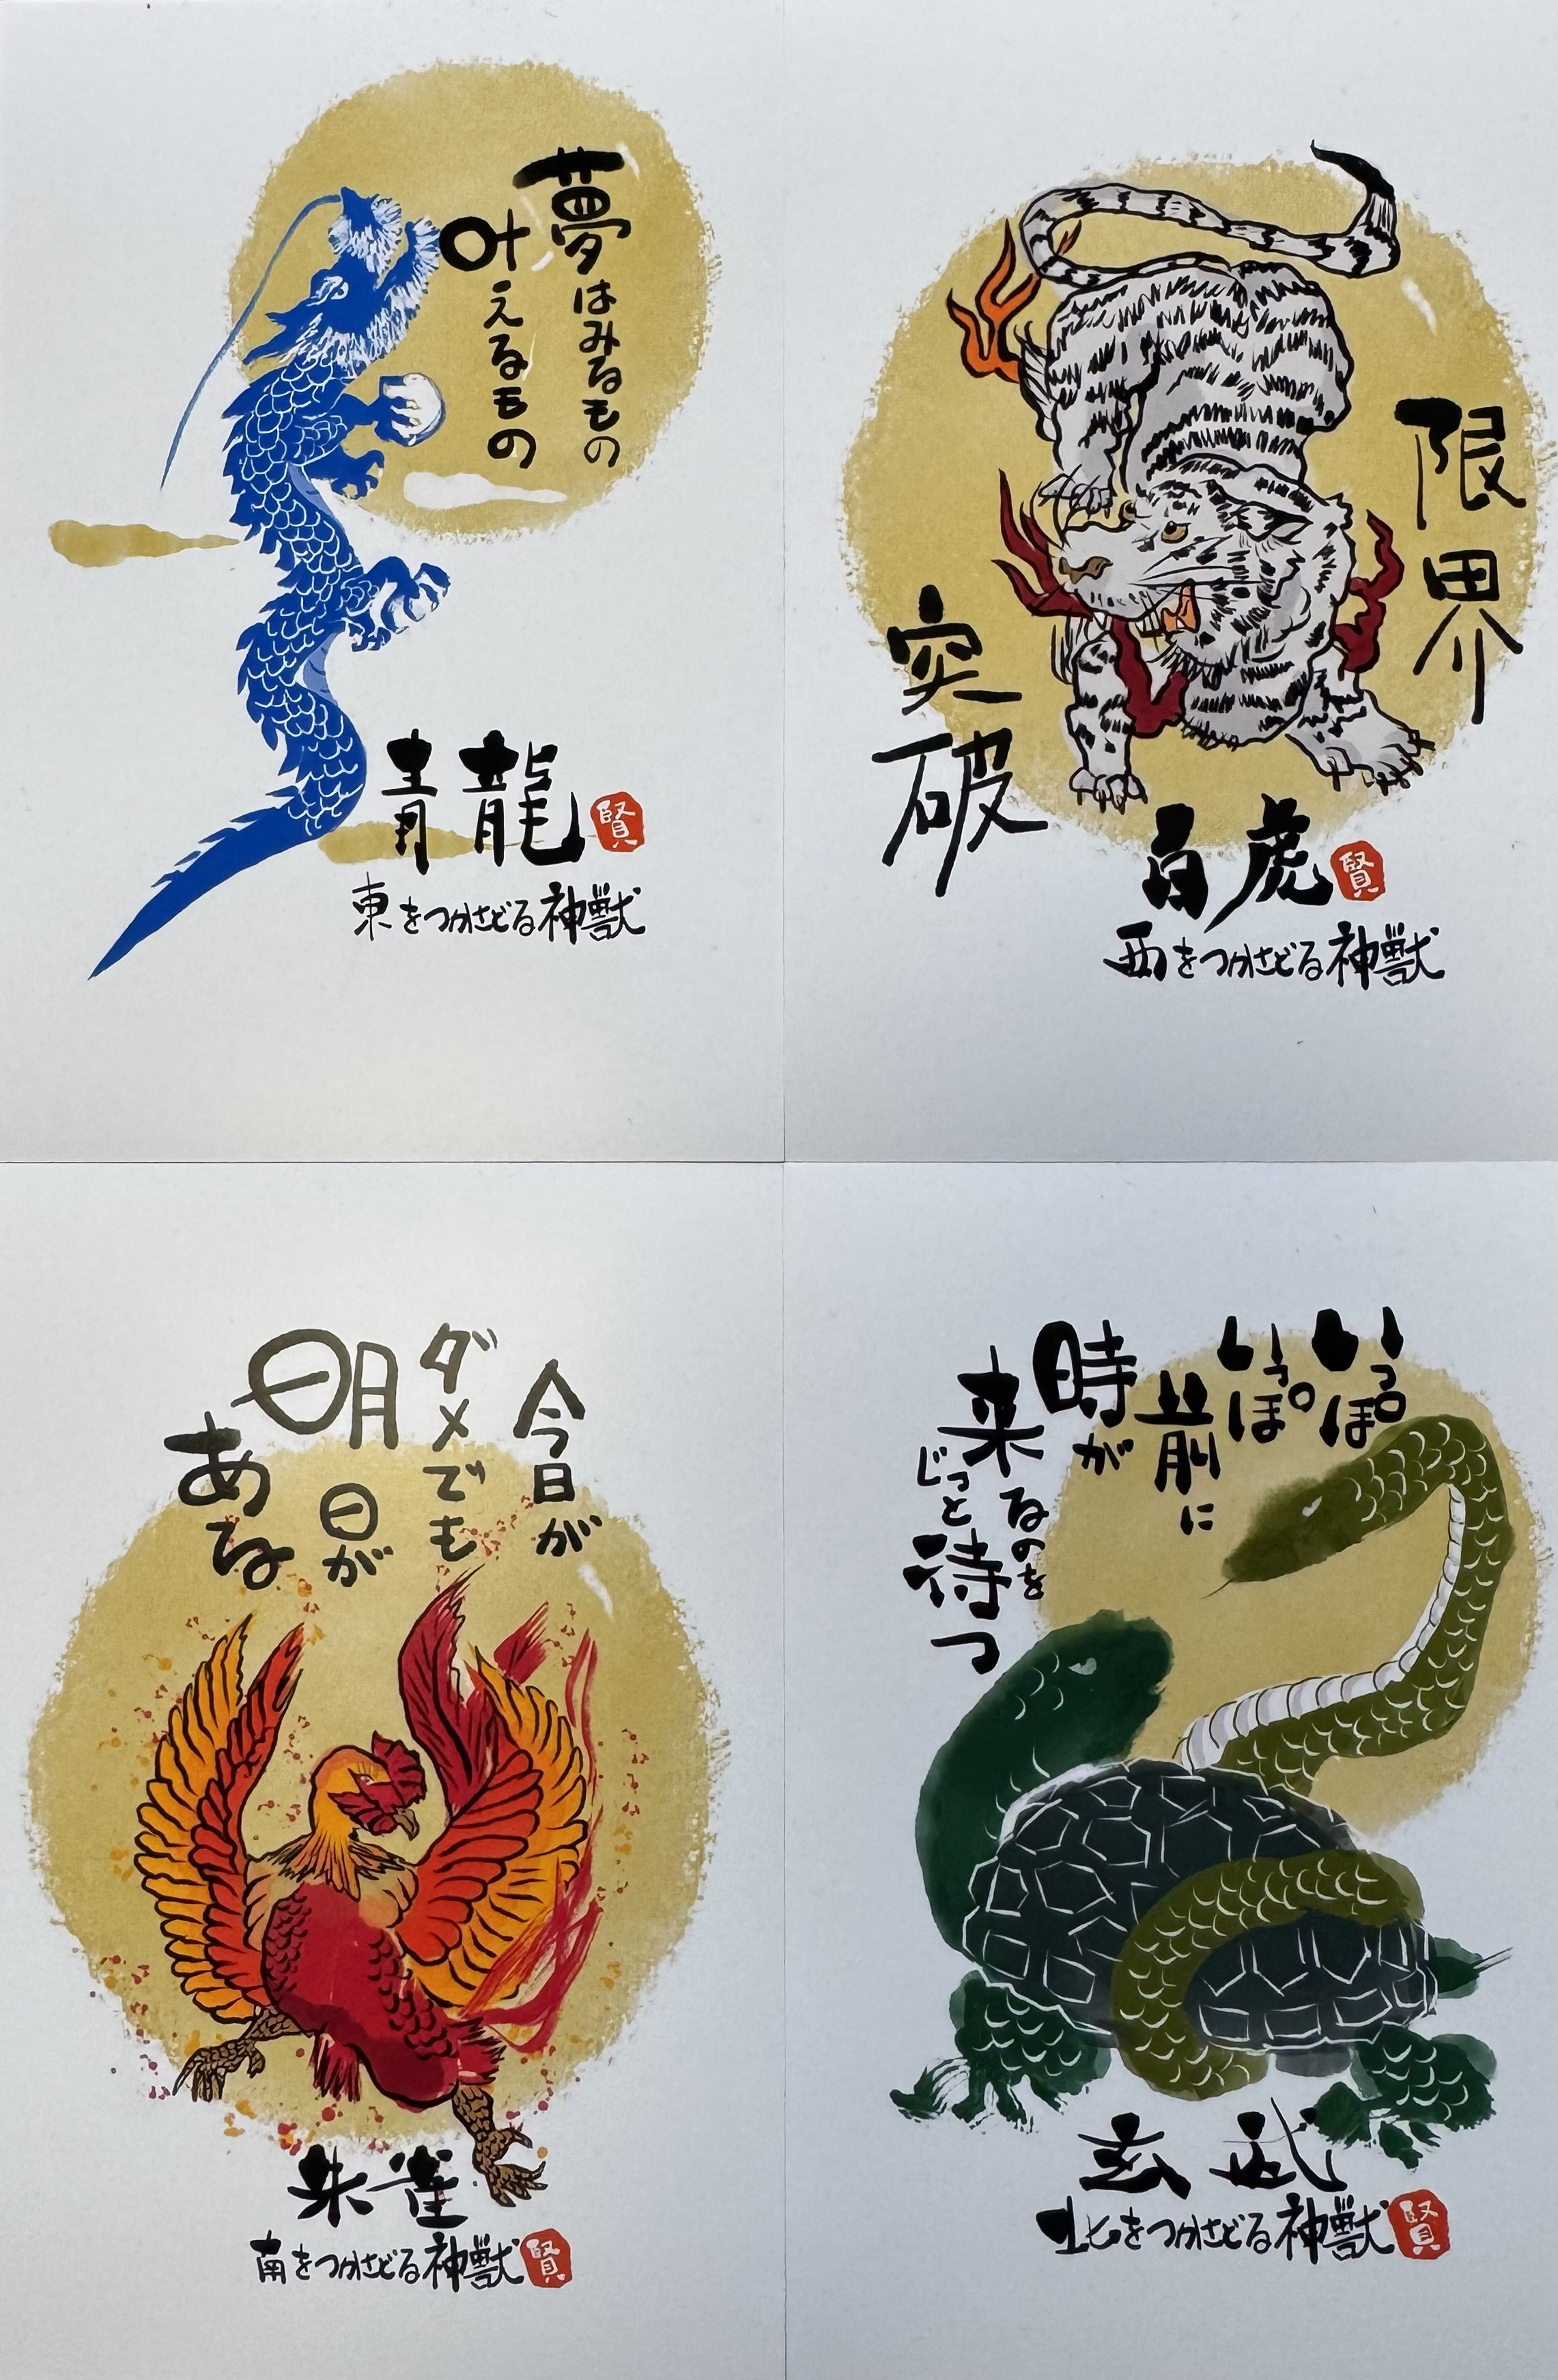 夢はみるもの
叶えるもの
青龍
賢
東をつかさどる神獣
限界
突破
白虎
賢
西をつかさどる神獣
今日が
ダメでも
明日が
ある
朱雀
南をつかさどる神獣
賢
いっぽ
いっぽ
前に
時が
来るのを
じっと待つ
玄武
北をつかさどる神獣
賢